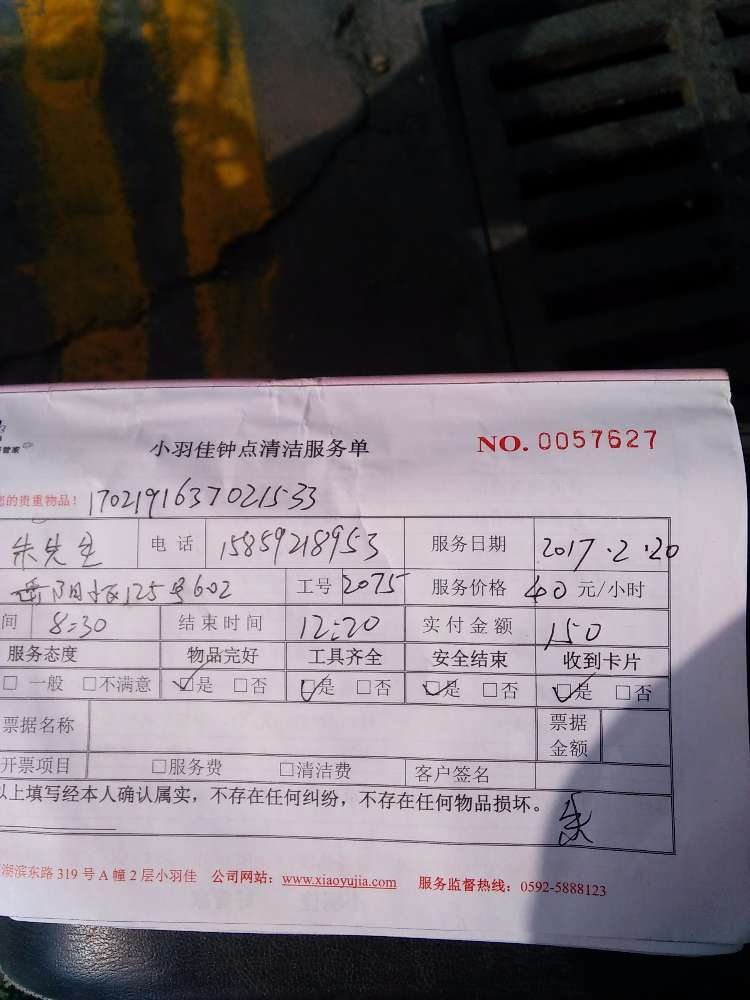 管家
小羽佳钟点清洁服务单 NO. 0057627
您的贵重物品! 17021916370215​33
朱先生 电话 15859218953 服务日期 2017.2.20
125号602 工号 2075 服务价格 40 元/小时
间 8:30 结束时间 12:20 实付金额 150
服务态度 物品完好 工具齐全 安全结束 收到卡片
□ 一般 □不满意 □是 □否 □是 □否 □是 □否 □是 □否
票据名称 票据金额
开票项目 □服务费 □清洁费 客户签名
以上填写经本人确认属实，不存在任何纠纷，不存在任何物品损坏。 朱
湖滨东路 319 号 A 幢 2 层小羽佳 公司网站：www.xiaoyujia.com 服务监督热线：0592-5888123